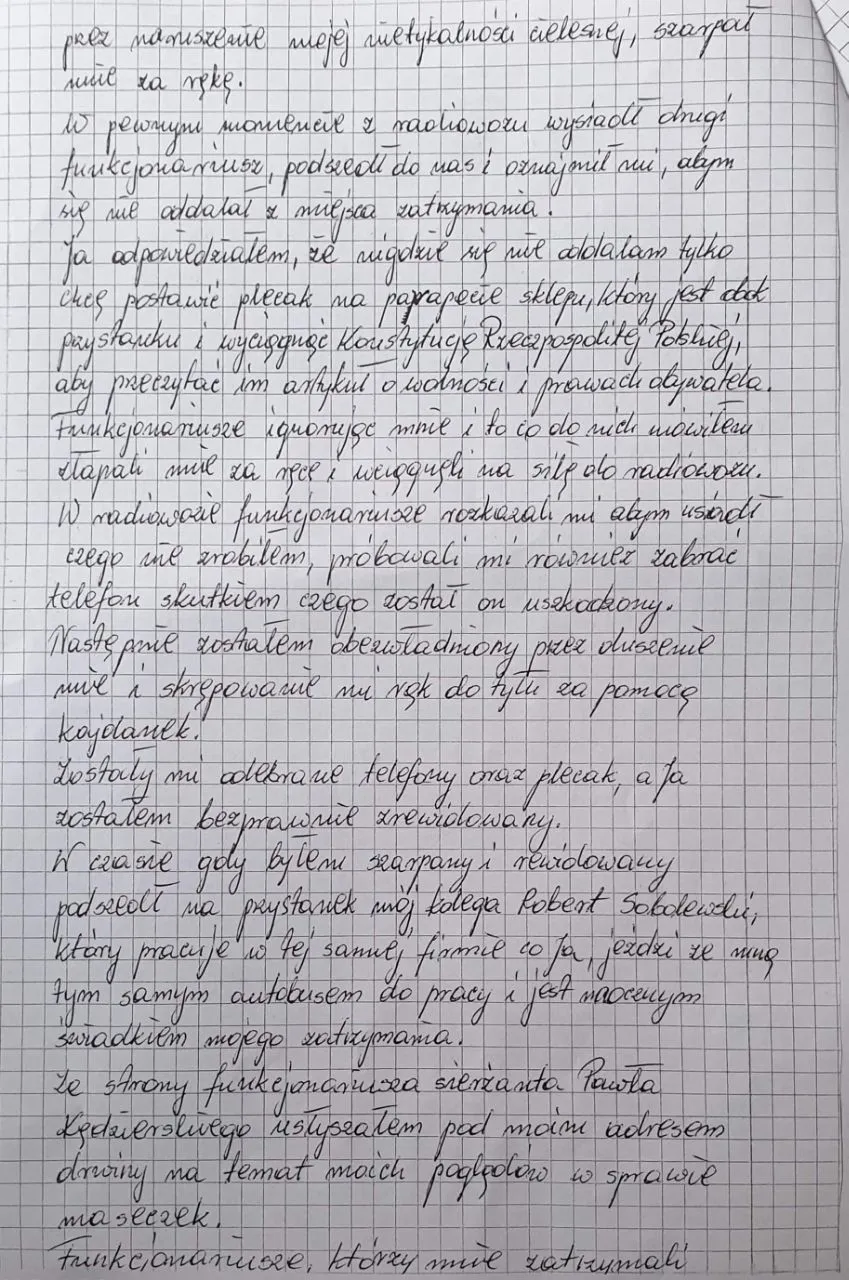 przez naruszenie mojej nietykalności cielesnej, szarpał
mnie za rękę.
W pewnym momencie z radiowozu wysiadł drugi
funkcjonariusz, podszedł do nas i oznajmił mi, abym
się nie oddalał z miejsca zatrzymania.
Ja odpowiedziałem, że nigdzie się nie oddalam tylko
chcę postawić plecak na parapecie sklepu, który jest obok
przystanku i wyciągnąć Konstytucję Rzeczpospolitej Polskiej,
aby przeczytać im artykuł o wolności i prawach obywatela.
Funkcjonariusze ignorując mnie i to co do nich mówiłem
złapali mnie za ręce i wciągnęli na siłę do radiowozu.
W radiowozie funkcjonariusze rozkazali mi abym usiadł
czego nie zrobiłem, próbowali mi również zabrać
telefon skutkiem czego został on uszkodzony.
Następnie zostałem obezwładniony przez duszenie
mnie i skrępowanie mi rąk do tyłu za pomocą
kajdanek.
Zostały mi odebrane telefony oraz plecak, a Ja
zostałem bezprawnie zrewidowany.
W czasie gdy byłem szarpany i rewidowany
podszedł na przystanek mój kolega Robert Sobolewski,
który pracuje w tej samej firmie co Ja, jeździ ze mną
tym samym autobusem do pracy i jest naocznym
świadkiem mojego zatrzymania.
Ze strony funkcjonariusza sierżanta Pawła
Kędzierskiego usłyszałem pod moim adresem
drwiny na temat moich poglądów w sprawie
maseczek.
Funkcjonariusze, którzy mnie zatrzymali